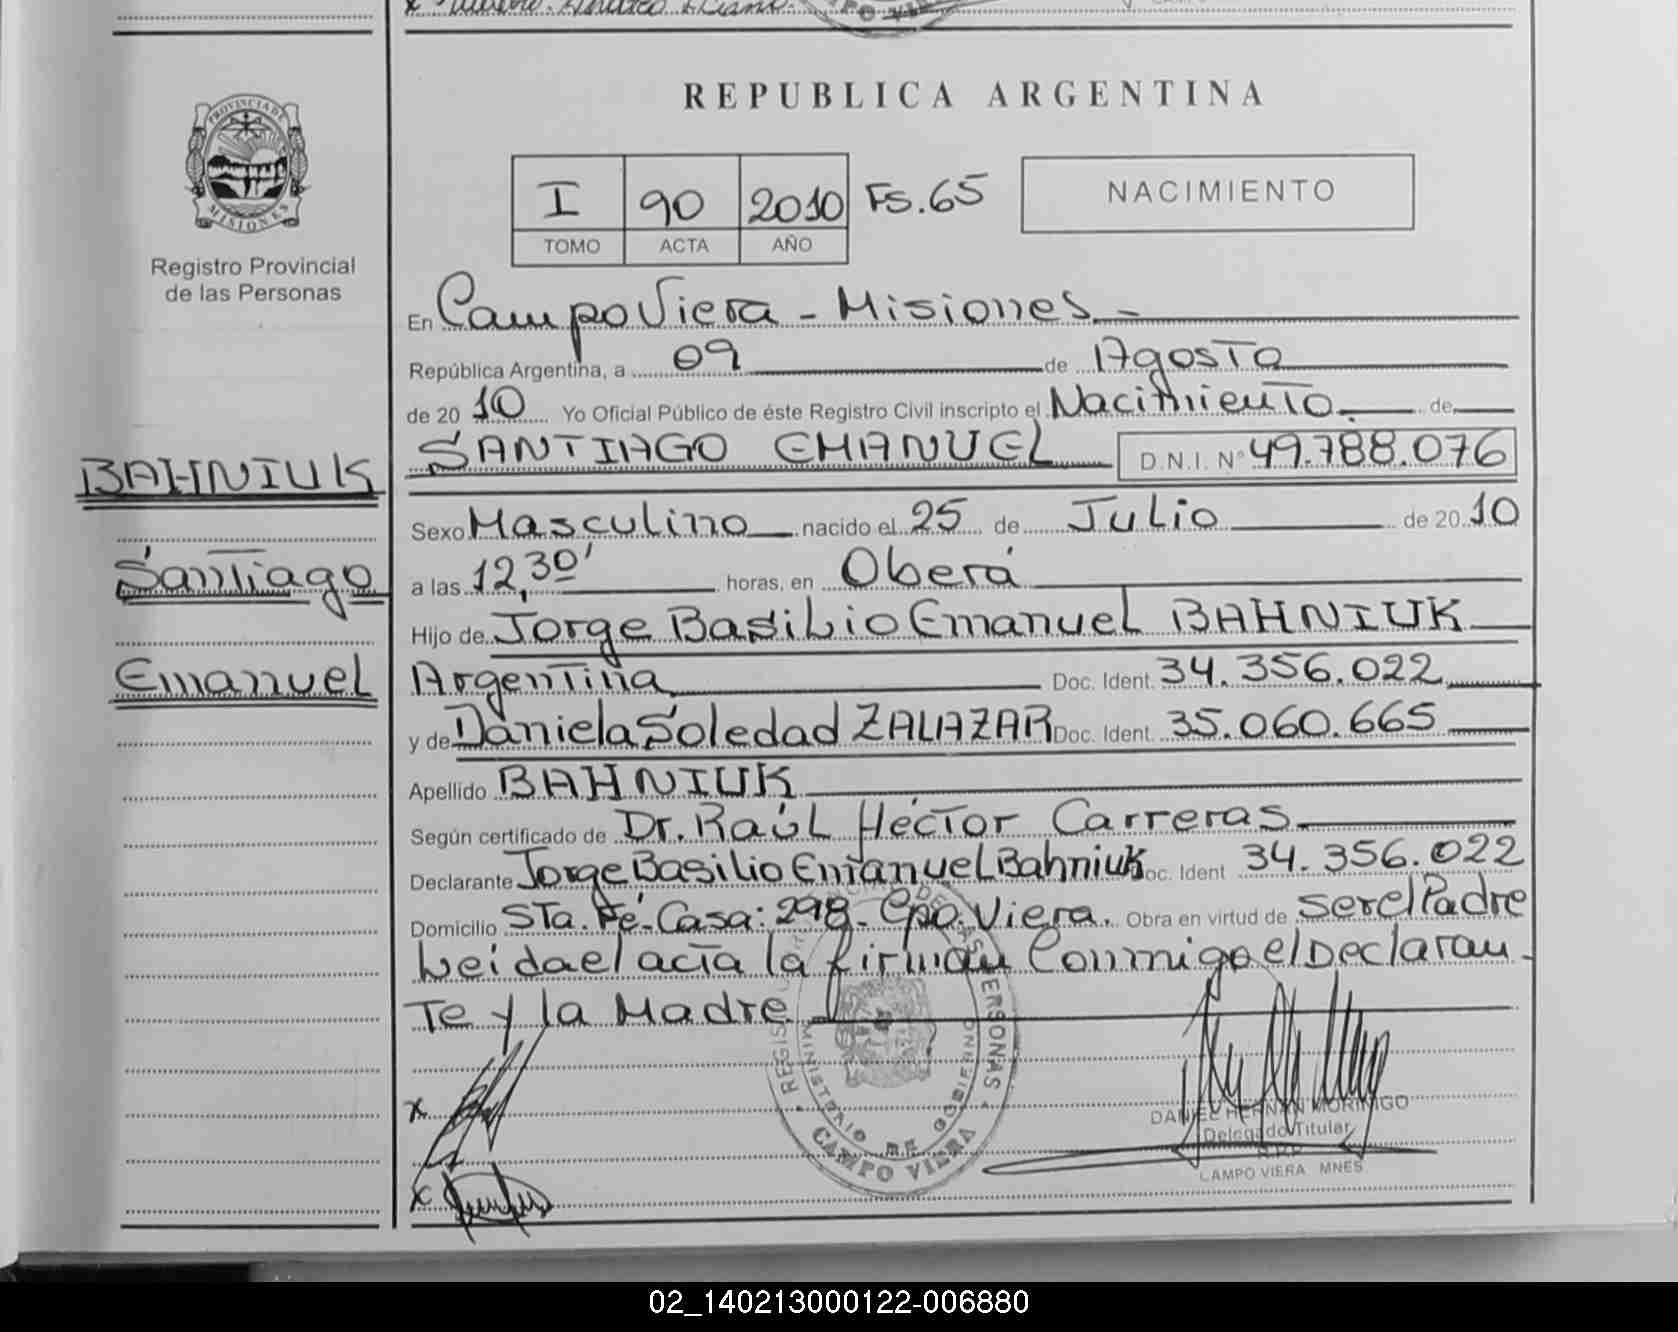 REPUBLICA ARGENTINA
PROVINCIA DE MISIONES
Registro Provincial
de las Personas
I 90 2010 Fs.65
TOMO ACTA AÑO
NACIMIENTO
En Campo Viera - Misiones. -
República Argentina, a 09 de Agosto
de 20 10 Yo Oficial Público de éste Registro Civil inscripto el Nacimiento. de
SANTIAGO EMANUEL D.N.I. N° 49.788.076
BAHNIUK
Santiago
Emanuel
Sexo Masculino nacido el 25 de Julio de 20 10
a las 12,30' horas, en Oberá
Hijo de Jorge Basilio Emanuel BAHNIUK
Argentina Doc. Ident. 34.356.022
y de Daniela Soledad ZALAZAR Doc. Ident. 35.060.665
Apellido BAHNIUK
Según certificado de Dr. Raúl Héctor Carreras.
Declarante Jorge Basilio Emanuel Bahniuk Doc. Ident 34.356.022
Domicilio Sta. Fé - Casa: 298 - Cpo. Viera. Obra en virtud de ser el Padre
Leida el acta la firman Conmigo el Declaran-
te y la Madre
x
x
REGISTRO PROVINCIAL DE LAS PERSONAS
MINISTERIO DE GOBIERNO
CAMPO VIERA
DANIEL HERNAN MORINIGO
Delegado Titular
R.P.P.
CAMPO VIERA MNES
02_140213000122-006880